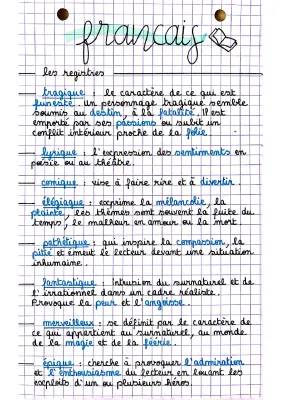 français
les registres
tragique : le caractère de ce qui est
funeste. un personnage tragique semble
soumis au destin, à la fatalité. Il est
emporté par ses passions ou subit un
conflit intérieur proche de la folie.
lyrique : l'expression des sentiments en
poésie ou au théâtre.
comique : vise à faire rire et à divertir
élégiaque : exprime la mélancolie, la
plainte, les thèmes sont souvent la fuite du
temps, le malheur en amour ou la mort
pathétique : qui inspire la compassion, la
pitié et émeut le lecteur devant une situation
inhumaine.
fantastique : intrusion du surnaturel et de
l'irrationnel dans un cadre réaliste.
Provoque la peur et l'angoisse.
merveilleux : se définit par le caractère de
ce qui appartient au surnaturel, au monde
de la magie et de la féérie.
épique : cherche à provoquer l'admiration
et l'enthousiasme du lecteur en louant les
exploits d'un ou plusieurs héros.